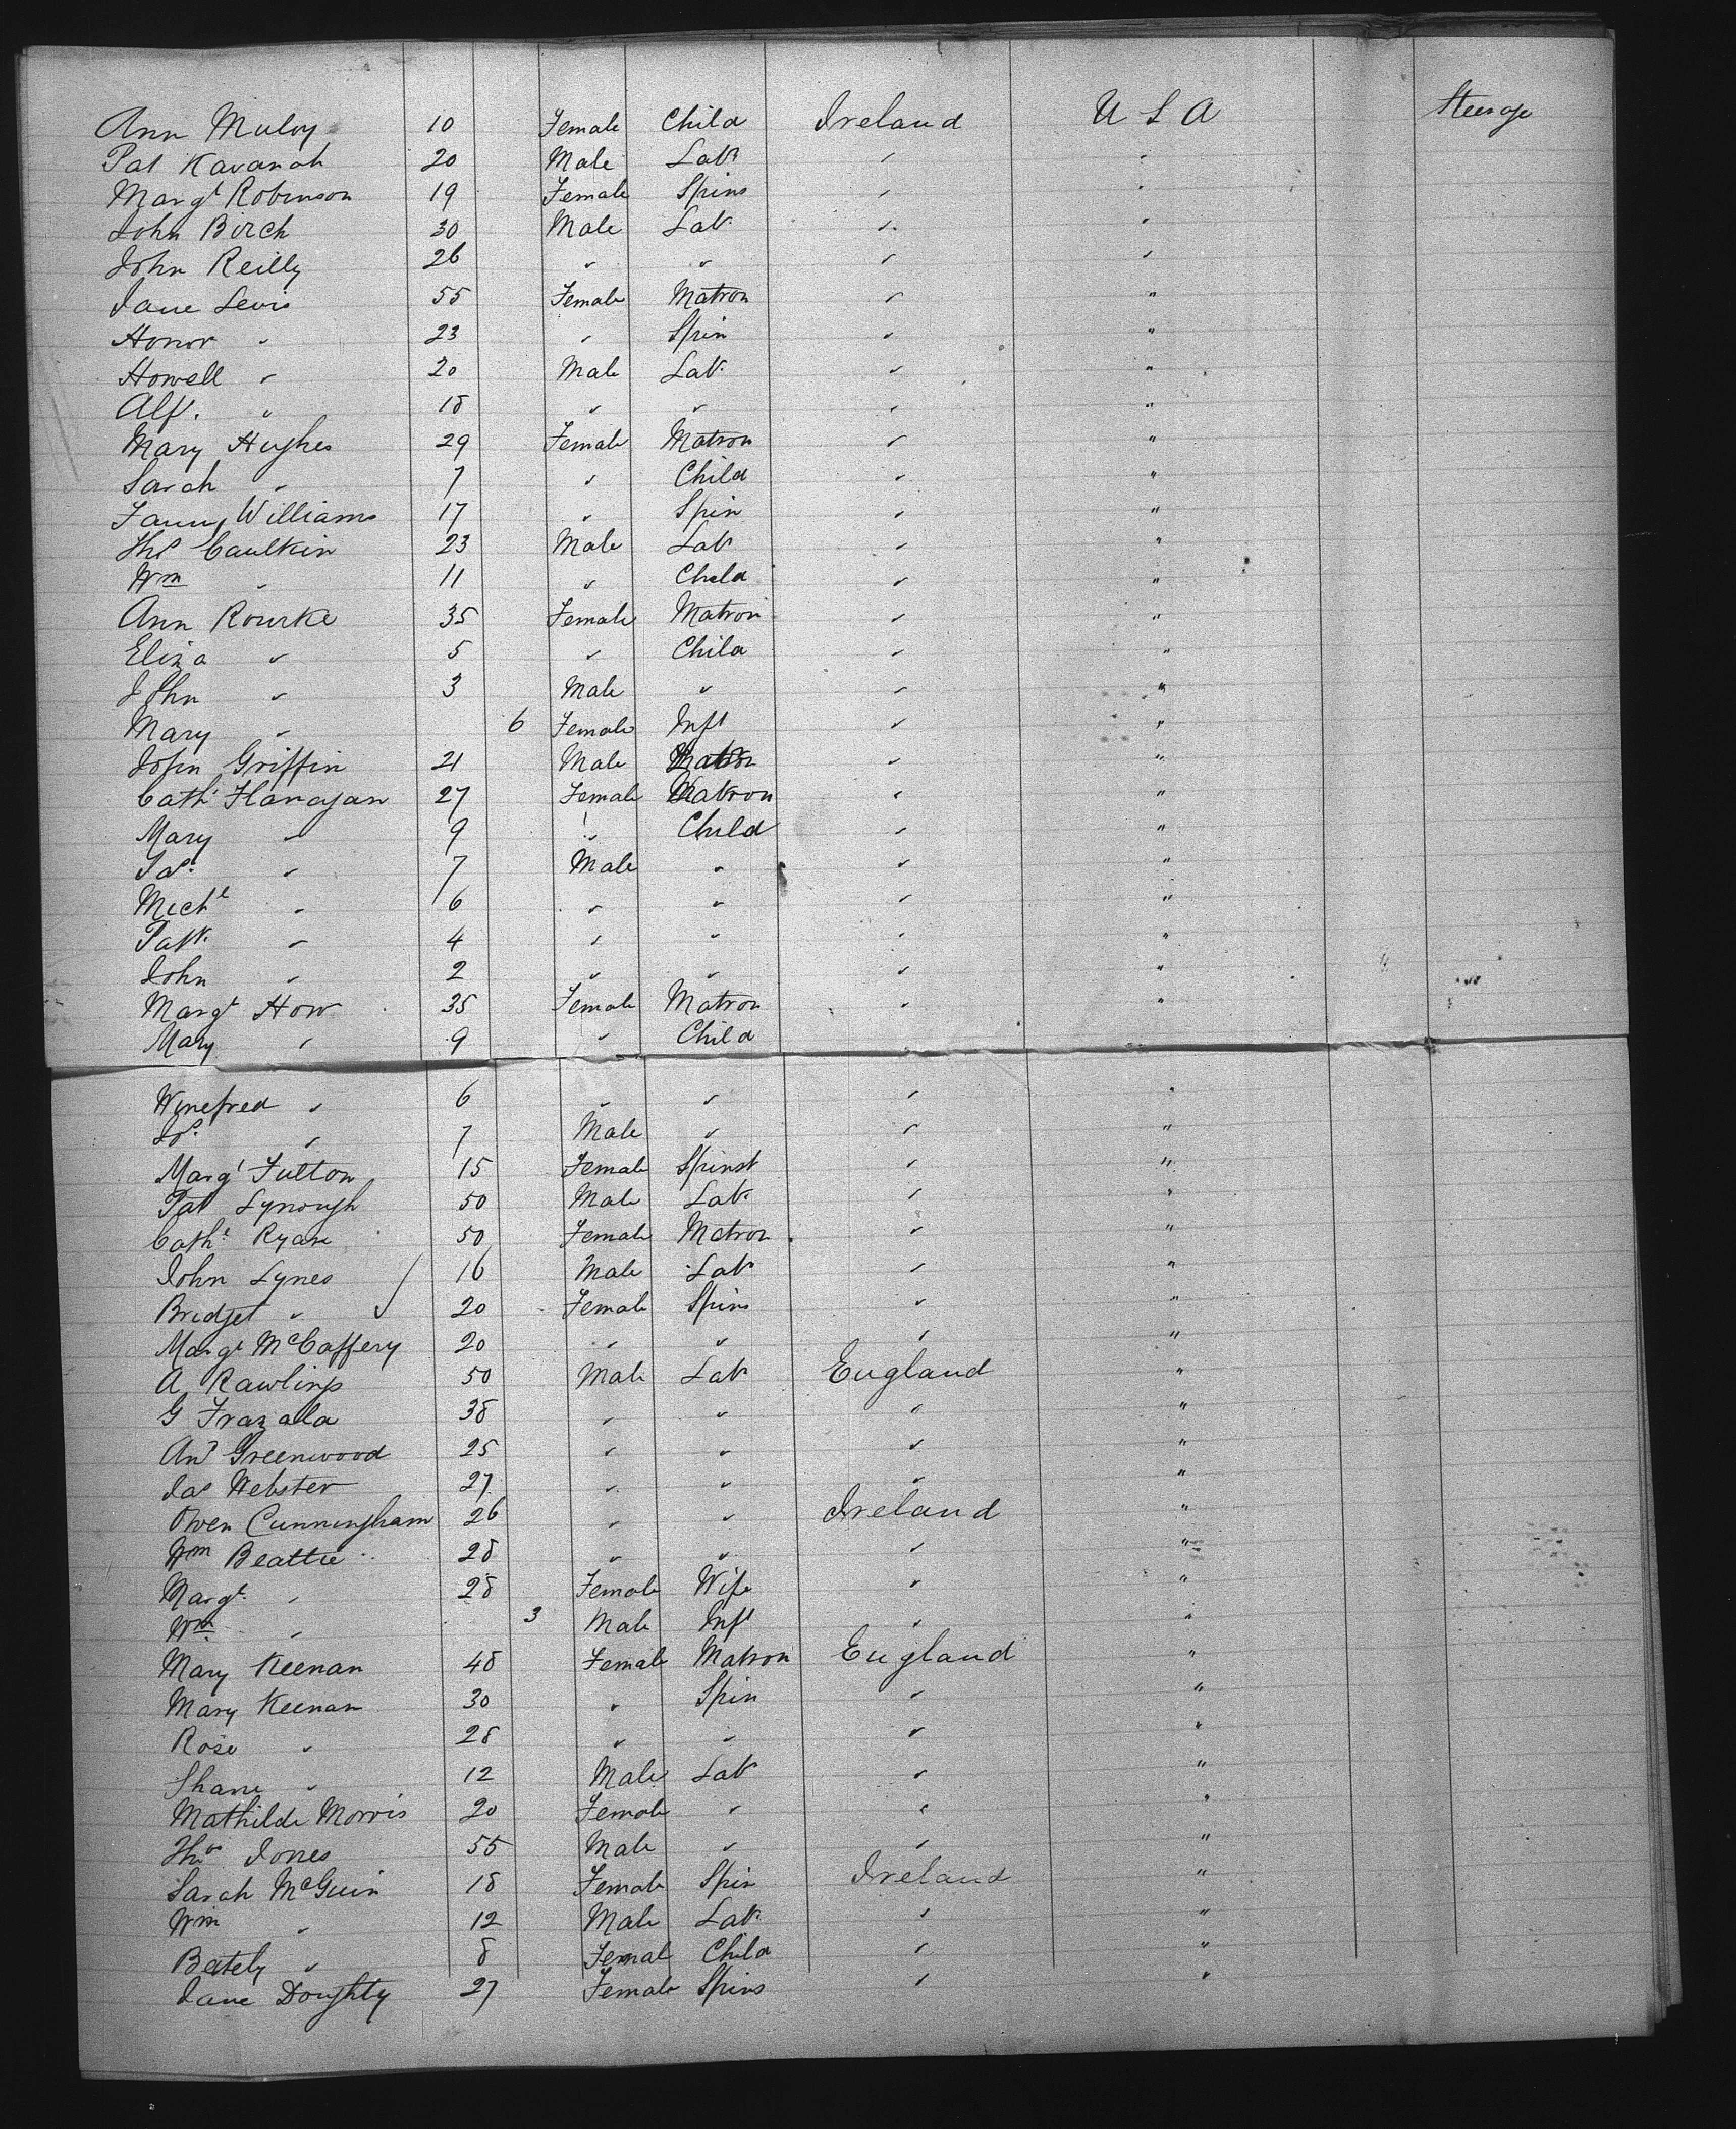 Ann Muloy 10 Female Child Ireland U S A Steerage
Pat Kavanah 20 Male Lab " "
Margt Robinson 19 Female Spins " "
John Birch 30 Male Lab " "
John Reilly 26 " " " "
Jane Lewis 55 Female Matron " "
Honor " 23 " Spin " "
Howell " 20 Male Lab " "
Alf. " 18 " " " "
Mary Hughes 29 Female Matron " "
Sarah " 7 " Child " "
Fanny Williams 17 " Spin " "
Ths Caulkin 23 Male Lab " "
Wm " 11 " Child " "
Ann Rourke 35 Female Matron " "
Eliza " 5 " Child " "
John " 3 Male " " "
Mary " 6 Female Inft " "
John Griffin 21 Male " "
Cath Flanagan 27 Female Matron " "
Mary " 9 " Child " "
Jas " 7 Male " " "
Michl " 6 " " " "
Patk " 4 " " " "
John " 2 " " " "
Margt How 35 Female Matron " "
Mary " 9 " Child
Winefred " 6 " " " "
" 7 Male " " "
Margt Fulton 15 Female Spinst " "
Pat Lynough 50 Male Lab " "
Cathe Ryan 50 Female Matron " "
John Lynes 16 Male Lab " "
Bridget " 20 Female Spins " "
Margt McCaffery 20 " " " "
A Rawlings 50 Male Lab England "
G Frazala 38 " " " "
And Greenwood 25 " " " "
Jas Webster 27 " " " "
Owen Cunningham 26 " " Ireland "
Wm Beattie 28 " " " "
Margt " 28 Female Wife " "
Wm " 3 Male Inft " "
Mary Keenan 48 Female Matron England "
Mary Keenan 30 " Spin " "
Rose " 28 " " " "
Shane " 12 Male Lab " "
Mathilde Morris 20 Female " " "
Thos Jones 55 Male " " "
Sarah McGuin 18 Female Spin Ireland "
Wm " 12 Male Lab " "
" 8 Femal Child " "
Jane Doughty 27 Female Spins " "